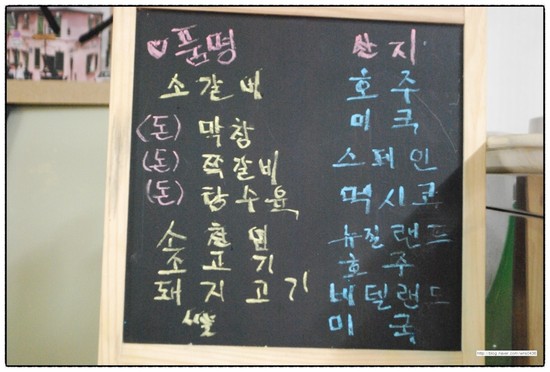 ♥품명 산지
소갈비 호주
(돈) 막창 미국
(돈) 쪽갈비 스페인
(돈) 탕수육 멕시코
소 뉴질랜드
소고기 호주
돼지고기 네델랜드
쌀 미국